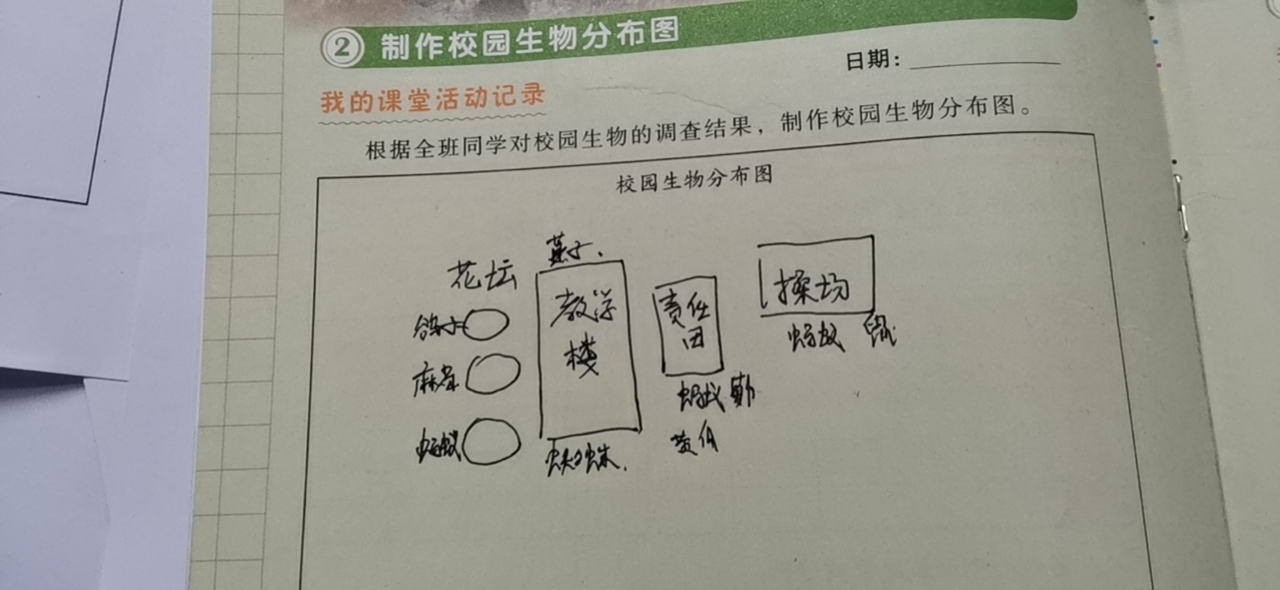 2 制作校园生物分布图
日期：
我的课堂活动记录
根据全班同学对校园生物的调查结果，制作校园生物分布图。
校园生物分布图
燕子.
花坛
教学楼
责任田
操场
鸽子
麻雀
蚂蚁
蜘蛛.
蚂蚁
蚂蚁